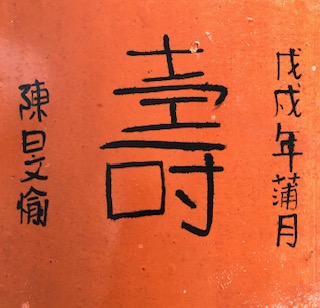 戊戌年蒲月
壽
陳日文愉